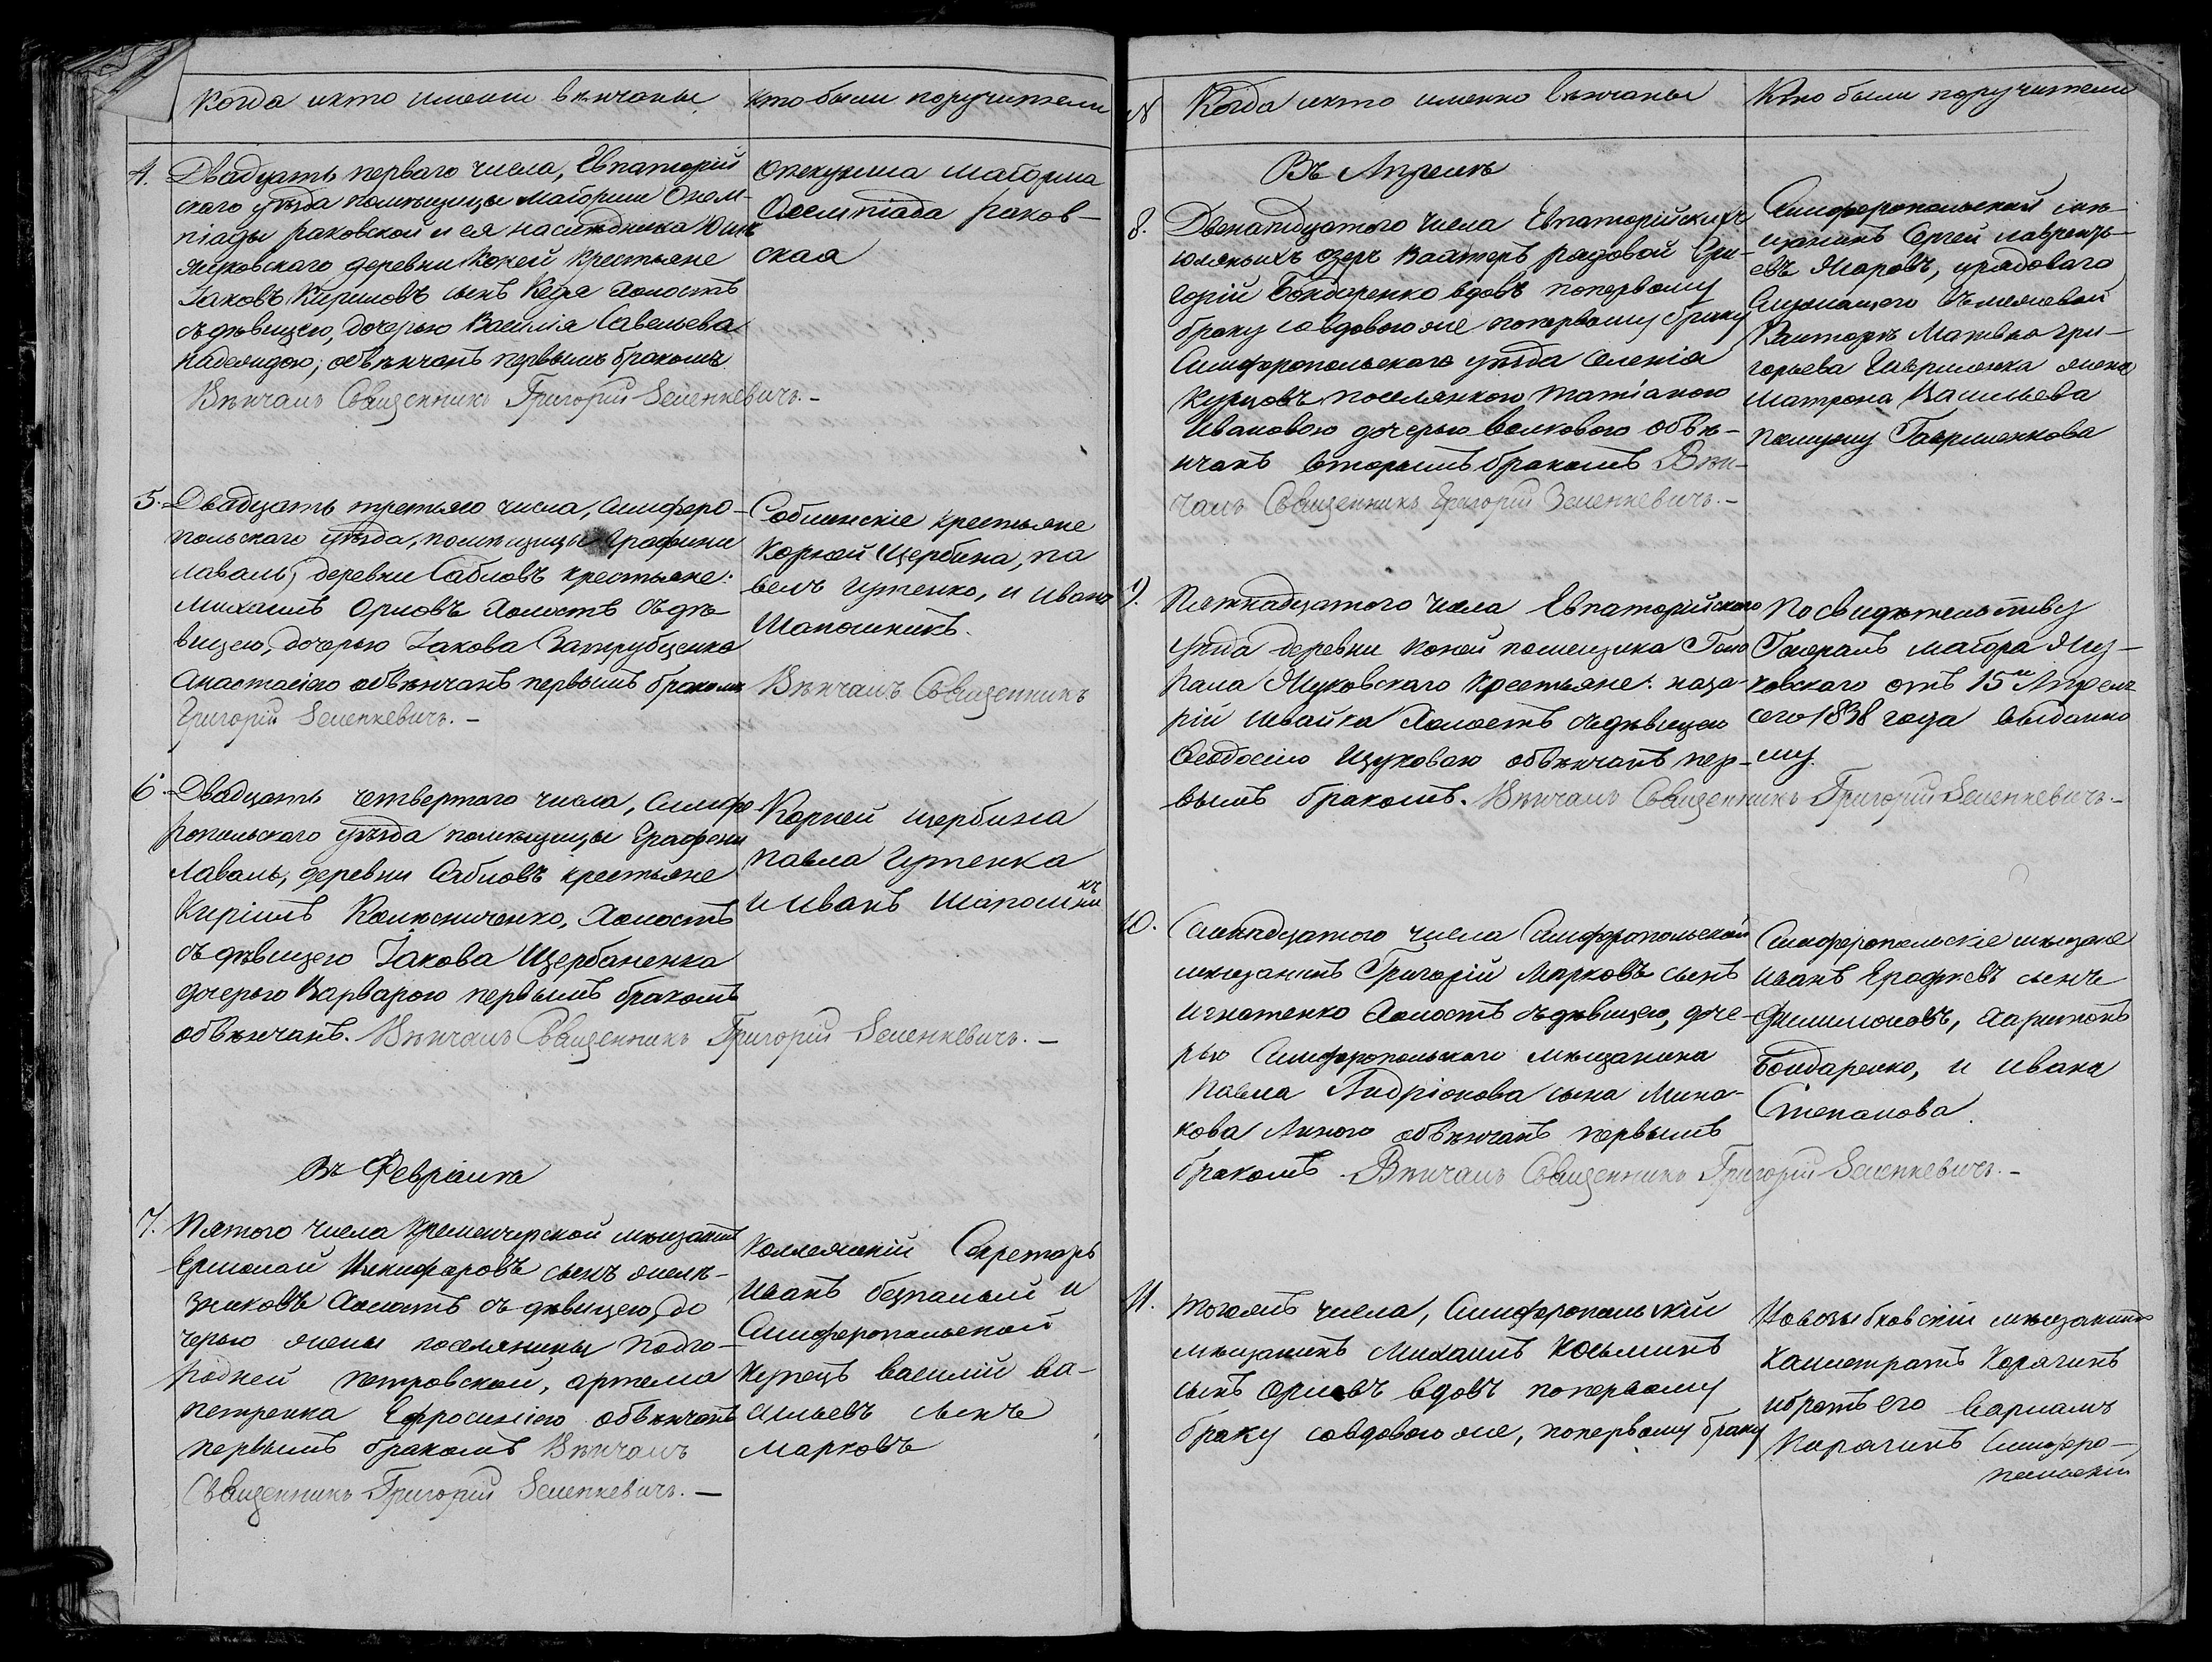 Когда икто именно вѣнчаны
кто были поручители
4. Двадцать перваго числа, Евпаторій
скаго уѣзда помѣщицы Маіорши Олим-
піады раковской и ея наслѣдника
деревни Коней крестьяне
Іаковъ Кириловъ сынъ холостъ
съ дѣвицею, дочерью Василія Савельева
надеждою; обвѣнчанъ первымъ бракомъ
Вѣнчалъ Священникъ Григорій Зеленкевичъ.-
опекунша маіорша
Олимпіада раков-
ская
5. Двадцать третьяго числа, Симферо-
польскаго уѣзда, помѣщицы Графини
лаваль, деревни Сабловъ крестьяне:
Михаилъ Орловъ холостъ съ дѣ-
вицею, дочерью Іакова
Анастасіею обвѣнчанъ первымъ бракомъ
Вѣнчалъ Священникъ
Григорій Зеленкевичъ.-
Саблинскіе крестьяне
Корней Щербина, па
велъ Гутенко, и иванъ
Шапошникъ.
6. Двадцать четвертаго числа, Симфе-
ропольскаго уѣзда помѣщицы Графени
Лаваль, деревни Сабловъ крестьяне
Кирилъ Колюсниченко, холостъ
съ дѣвицею Іакова Щербаненка
дочерью Варварою первымъ бракомъ
обвѣнчанъ. Вѣнчалъ Священникъ Григорій Зеленкевичъ.-
Корней щербина
павла Гутенка
и иванъ Шапошни
къ
Въ Февралѣ
7. Пятого числа Кременчугской мѣщанинъ
Ермолай Никифоровъ сынъ желѣ-
зняковъ холостъ съ дѣвицею, до
черью жены поселянины подго-
родней петровской, артема
петренка Ефросиніею обвѣнчанъ
первымъ бракомъ Вѣнчалъ
Священникъ Григорій Зеленкевичъ.-
Коллежскій Секретарь
Иванъ безпалый и
Симферопольской
купецъ василій ва-
сильевъ сынъ
марковъ
N Когда икто именно вѣнчаны
Кто были поручители
Въ Апрелѣ
8. Двенатдцатого числа Евпаторійскихъ
соляныхъ озеръ Вахтеръ рядовой Гри-
горій Бондаренко вдовъ попервому
браку совдовою же попервому браку
Симферопольскаго уѣзда селенія
Курцовъ поселянкою татіаною
Ивановою дочерью волкового обвѣ-
нчанъ вторымъ бракомъ Вѣн-
чалъ Священникъ Григорій Зеленкевичъ.-
Симферопольской мѣ-
щанинъ Сергей лаврентъ-
евъ Жаровъ, урядоваго
Матвѣя гри-
горьева Гавриленка жена
Матрона Васильева
помужу Гавриленкова
9. Пятнадцатого числа Евпаторійскаго
уѣзда деревни Коней помещика Гене
рала Жуковскаго Крестьяне: наза-
рій Швайка холостъ съ дѣвицею
Феодосіею Щуковою обвѣнчанъ пер-
вымъ бракомъ. Вѣнчалъ Священникъ Григорій Зеленкевичъ.-
По свидѣтельству
Генералъ маіора Жу-
ковскаго отъ 15го Апреля
сего 1838 года выданно
му.
10. Симнадцатого числа Симферопольской
мѣщанинъ Григорій Марковъ сынъ
Игнатенко холостъ съ дѣвицею, доче-
рью Симферопольскаго мѣщанина
Павла Андріонова сына Мина-
кова Анною обвѣнчанъ первымъ
бракомъ. Вѣнчалъ Священникъ Григорій Зеленкевичъ.-
Симферопольскіе мѣщане
Иванъ сынъ
Филимоновъ, харитонъ
Бондаренко, и ивана
Степанова
11. Тогожъ числа, Симферопольскій
мѣщанинъ Михаилъ Козьминъ
сынъ орловъ вдовъ попервому
браку совдовою же, попервому браку
Новозыбковскій мѣщанинъ
Калистратъ Карягинъ
ибратъ его варламъ
Карягинъ Симферо-
польскій